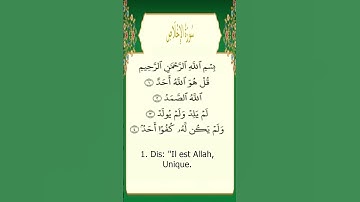 سورة الإخلاص
بِسْمِ ٱللَّهِ ٱلرَّحْمَٰنِ ٱلرَّحِيمِ
قُلْ هُوَ ٱللَّهُ أَحَدٌ ۝١
ٱللَّهُ ٱلصَّمَدُ ۝٢
لَمْ يَلِدْ وَلَمْ يُولَدْ ۝٣
وَلَمْ يَكُن لَّهُۥ كُفُوًا أَحَدٌۢ ۝٤
1. Dis: "Il est Allah,
Unique.